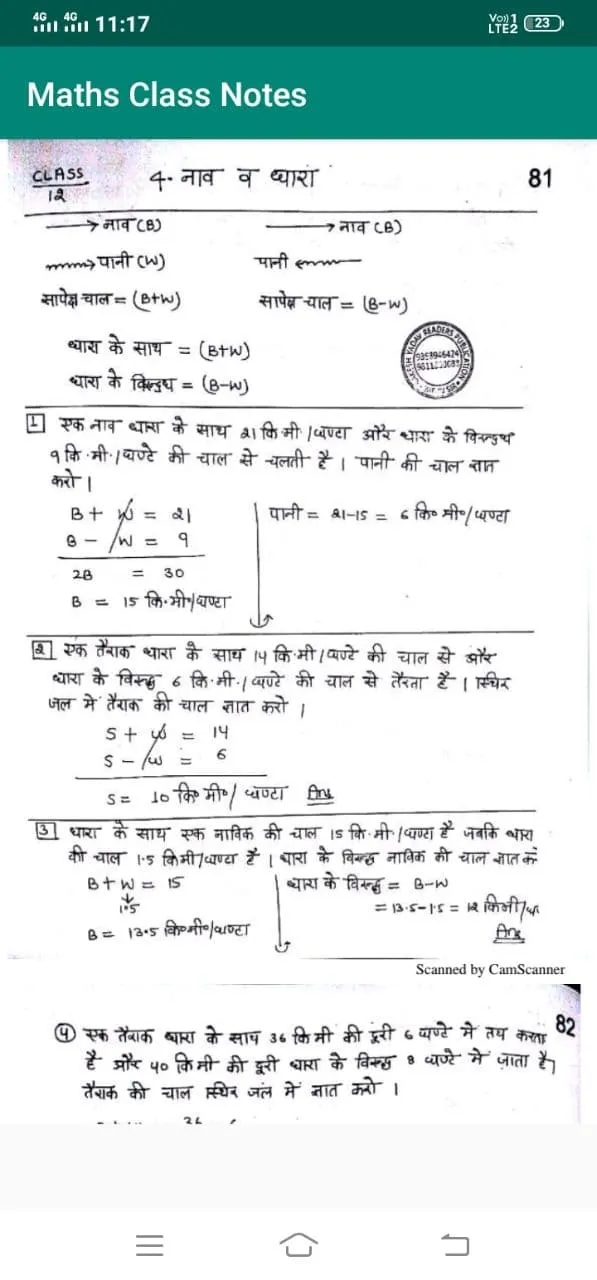 4G 4G 11:17 Vo)) 1 LTE2 23
Maths Class Notes
CLASS 12 4. नाव व धारा 81
नाव (B) नाव (B)
पानी (W) पानी
सापेक्ष चाल = (B+W) सापेक्ष चाल = (B-W)
धारा के साथ = (B+W)
धारा के विरूद्ध = (B-W)
READERS PUBLICATION
1 एक नाव धारा के साथ 21 कि.मी./घण्टा और धारा के विरूद्ध
9 कि.मी./घण्टे की चाल से चलती है। पानी की चाल ज्ञात
करो।
B + W = 21 पानी = 21-15 = 6 कि० मी०/घण्टा
B - W = 9
2B = 30
B = 15 कि.मी०/घण्टा
2 एक तैराक धारा के साथ 14 कि.मी./घण्टे की चाल से और
धारा के विरूद्ध 6 कि.मी./घण्टे की चाल से तैरता है। स्थिर
जल में तैराक की चाल ज्ञात करो।
S + W = 14
S - W = 6
S = 10 कि० मी०/घण्टा Ans
3 धारा के साथ एक नाविक की चाल 15 कि.मी./घण्टा है जबकि धारा
की चाल 1.5 किमी/घण्टा है। धारा के विरूद्ध नाविक की चाल ज्ञात
B + W = 15 धारा के विरूद्ध = B-W
1.5 = 13.5-1.5 = 12 किमी/घ
B = 13.5 कि०मी०/घण्टा Ans
Scanned by CamScanner
82
4 एक तैराक धारा के साथ 36 कि मी की दूरी 6 घण्टे में तय करता
है और 40 कि मी की दूरी धारा के विरूद्ध 8 घण्टे में जाता है,
तैराक की चाल स्थिर जल में ज्ञात करो।
36